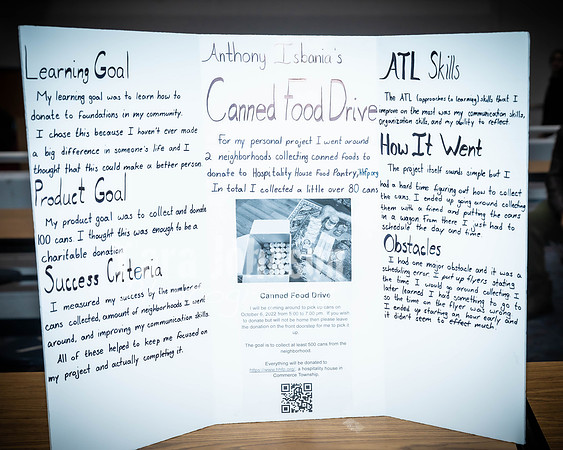 Learning Goal
My learning goal was to learn how to
donate to foundations in my community.
I chose this because I haven't ever made
a big difference in someone's life and I
thought that this could make a better person
Product Goal
My product goal was to collect and donate
100 cans I thought this was enough to be a
charitable donation
Success Criteria
I measured my success by the number of
cans collected, amount of neighborhoods I went
around, and improving my communication skills.
All of these helped to keep me focused on
my project and actually completing it.
Anthony Isbania's
Canned Food Drive
For my personal project I went around
2 neighborhoods collecting canned foods to
donate to Hospitality House Food Pantry, hhfp.org
In total I collected a little over 80 cans
Canned Food Drive
I will be coming around to pick up cans on
October 6, 2022 from 5:00 to 7:00 pm. If you wish
to donate but will not be home then please leave
the donation on the front doorstep for me to pick it
up.
The goal is to collect at least 500 cans from the
neighborhood.
Everything will be donated to
https://www.hhfp.org/, a hospitality house in
Commerce Township.
ATL Skills
The ATL (approaches to learning) skills that I
improve on the most was my communication skills,
organization skills, and my ability to reflect.
How It Went
The project itself sounds simple but I
had a hard time figuring out how to collect
the cans. I ended up going around collecting
them with a friend and putting the cans
in a wagon from there I just had to
schedule the day and time
Obstacles
I had one major obstacle and it was a
scheduling error. I put up flyers stating
the time I would go around collecting I
later learned I had something to go to
so the time on the flyer was wrong.
I ended up starting an hour early and
it didn't seem to effect much.